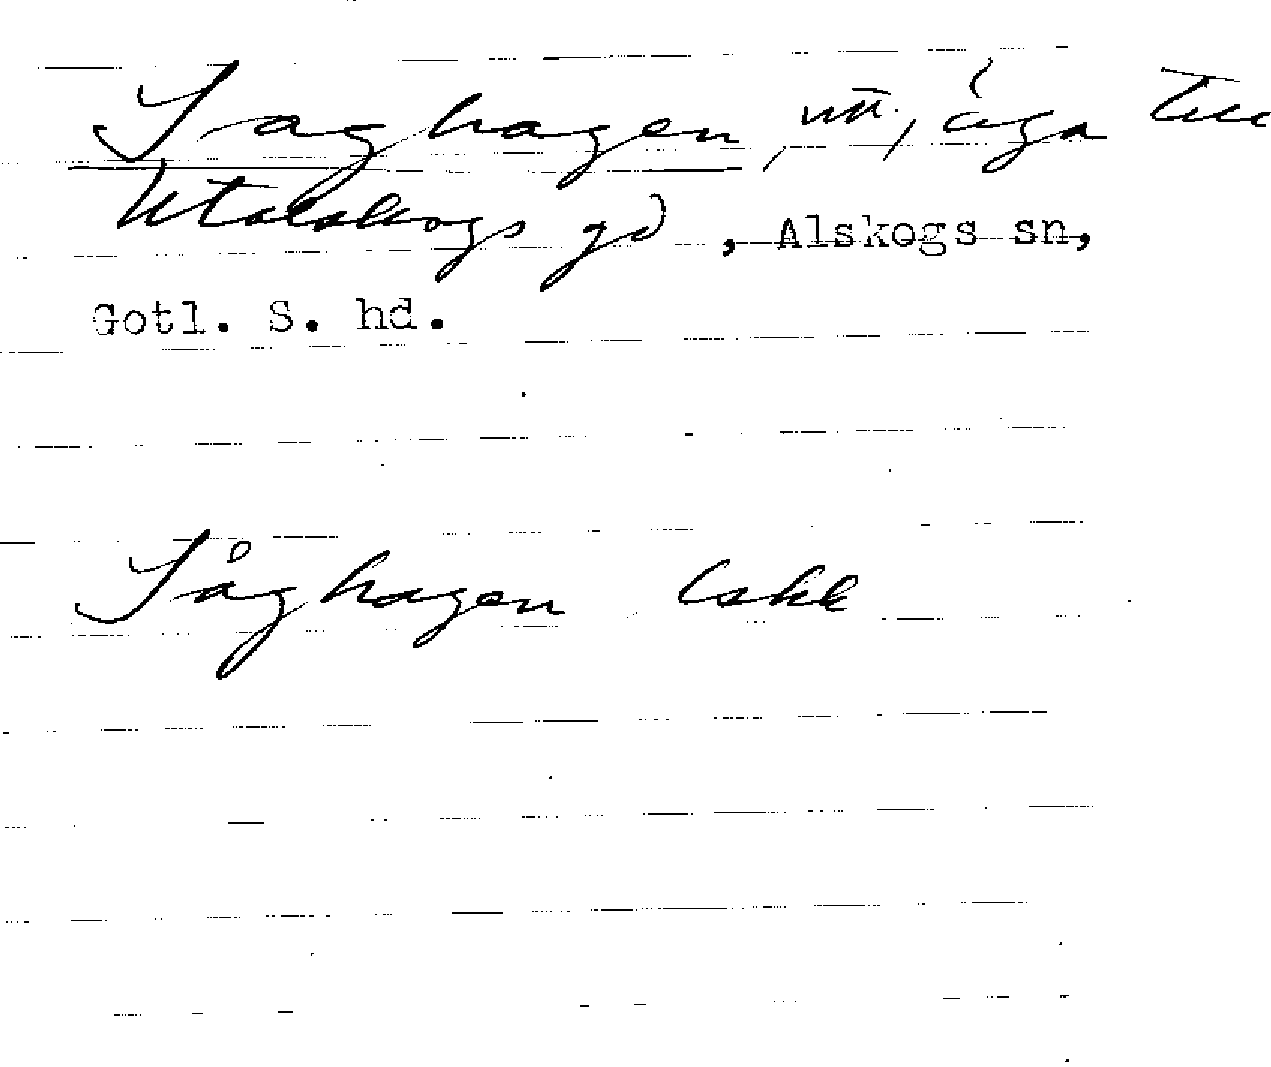 Saghagen, utt., äga till
Utalskogs gd, Alskogs sn,
Gotl. S. hd.
Såghagen Lskk